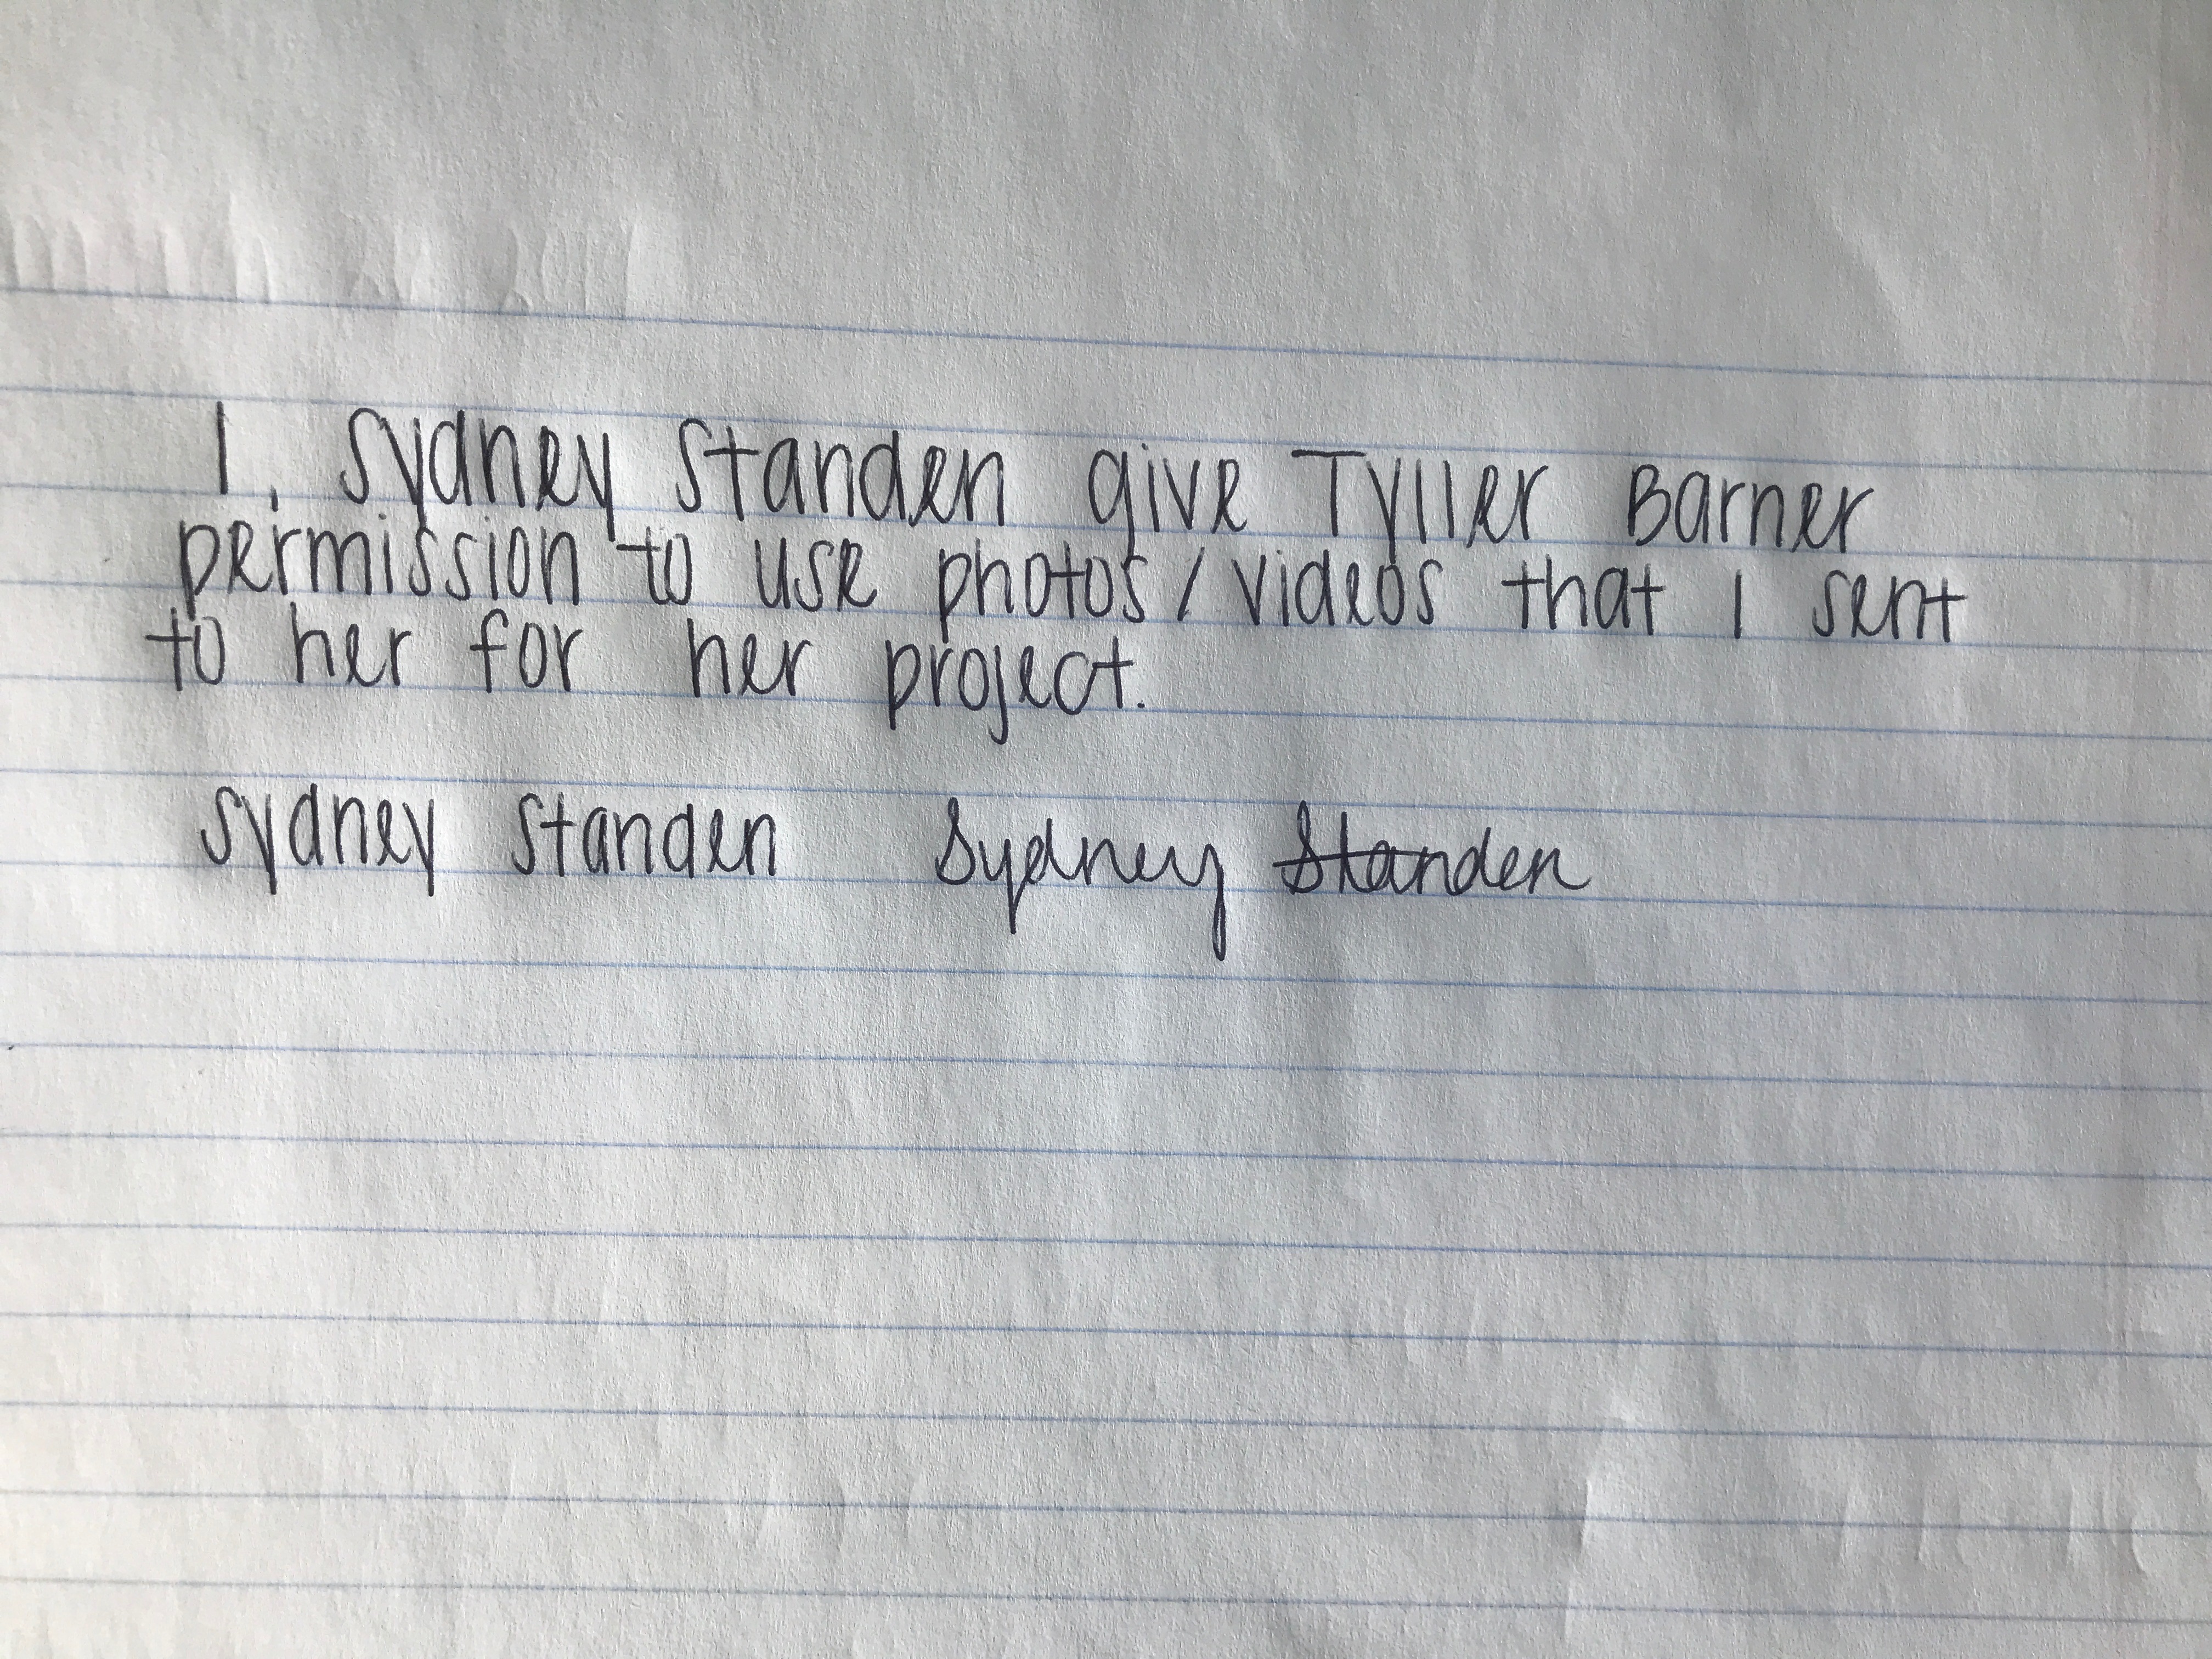 I Sydney Standen give Tyller Barner
permission to use photos / videos that I sent
to her for her project.
Sydney Standen Sydney Standen